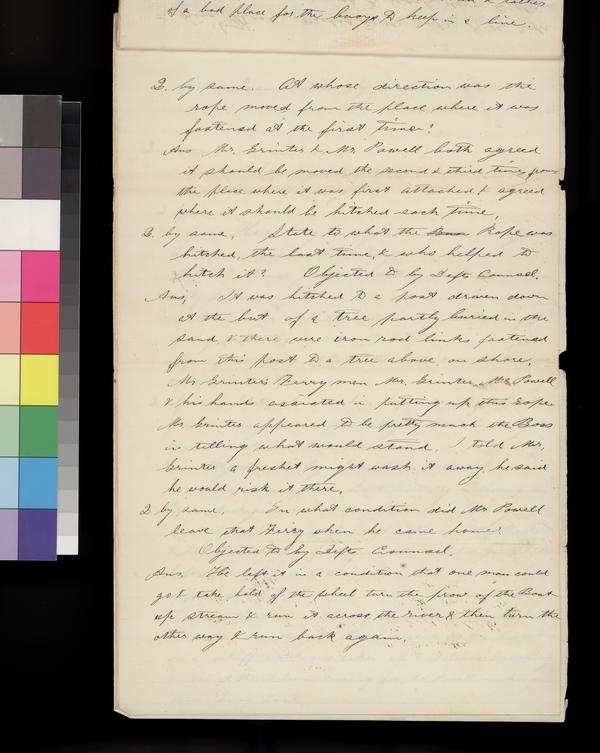 of a bad place for the buoys to keep in a line.
Q. by same. At whose direction was the
rope moved from the place where it was
fastened at the first time?
Ans Mr. Grinter & Mr. Powell both agreed
it should be moved the second & third time from
the place where it was first attached & agreed
where it should be hitched each time.
Q. by same. State to what the Rope was
hitched, the last time, & who helped to
hitch it? Objected to by Defts Counsel.
Ans, It was hitched to a post driven down
at the but of a tree partly buried in the
sand, & there were iron rod links fastened
from this post to a tree above on shore,
Mr Grinter's Ferry men Mr. Grinter Mr. Powell
& his hands assisted in putting up this Rope
Mr Grinter appeared to be pretty much the Boss
in telling what would stand. I told Mr.
Grinter a freshet might wash it away, he said
he would risk it there.
Q by same. In what condition did Mr Powell
leave that Ferry when he came home?
Objected to by Defts Counsel.
Ans. He left it in a condition that one man could
go & take hold of the wheel turn the prow of the Boat
up stream & run it across the river & then turn the
other way & run back again.